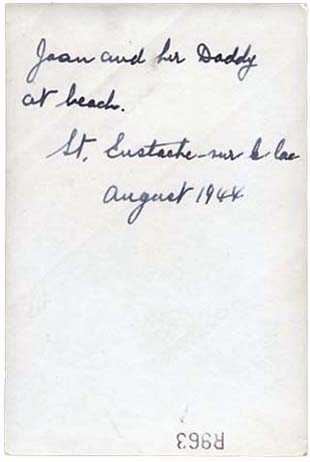 Joan and her Daddy
at beach.
St. Eustache-sur le lac
August 1944
R963